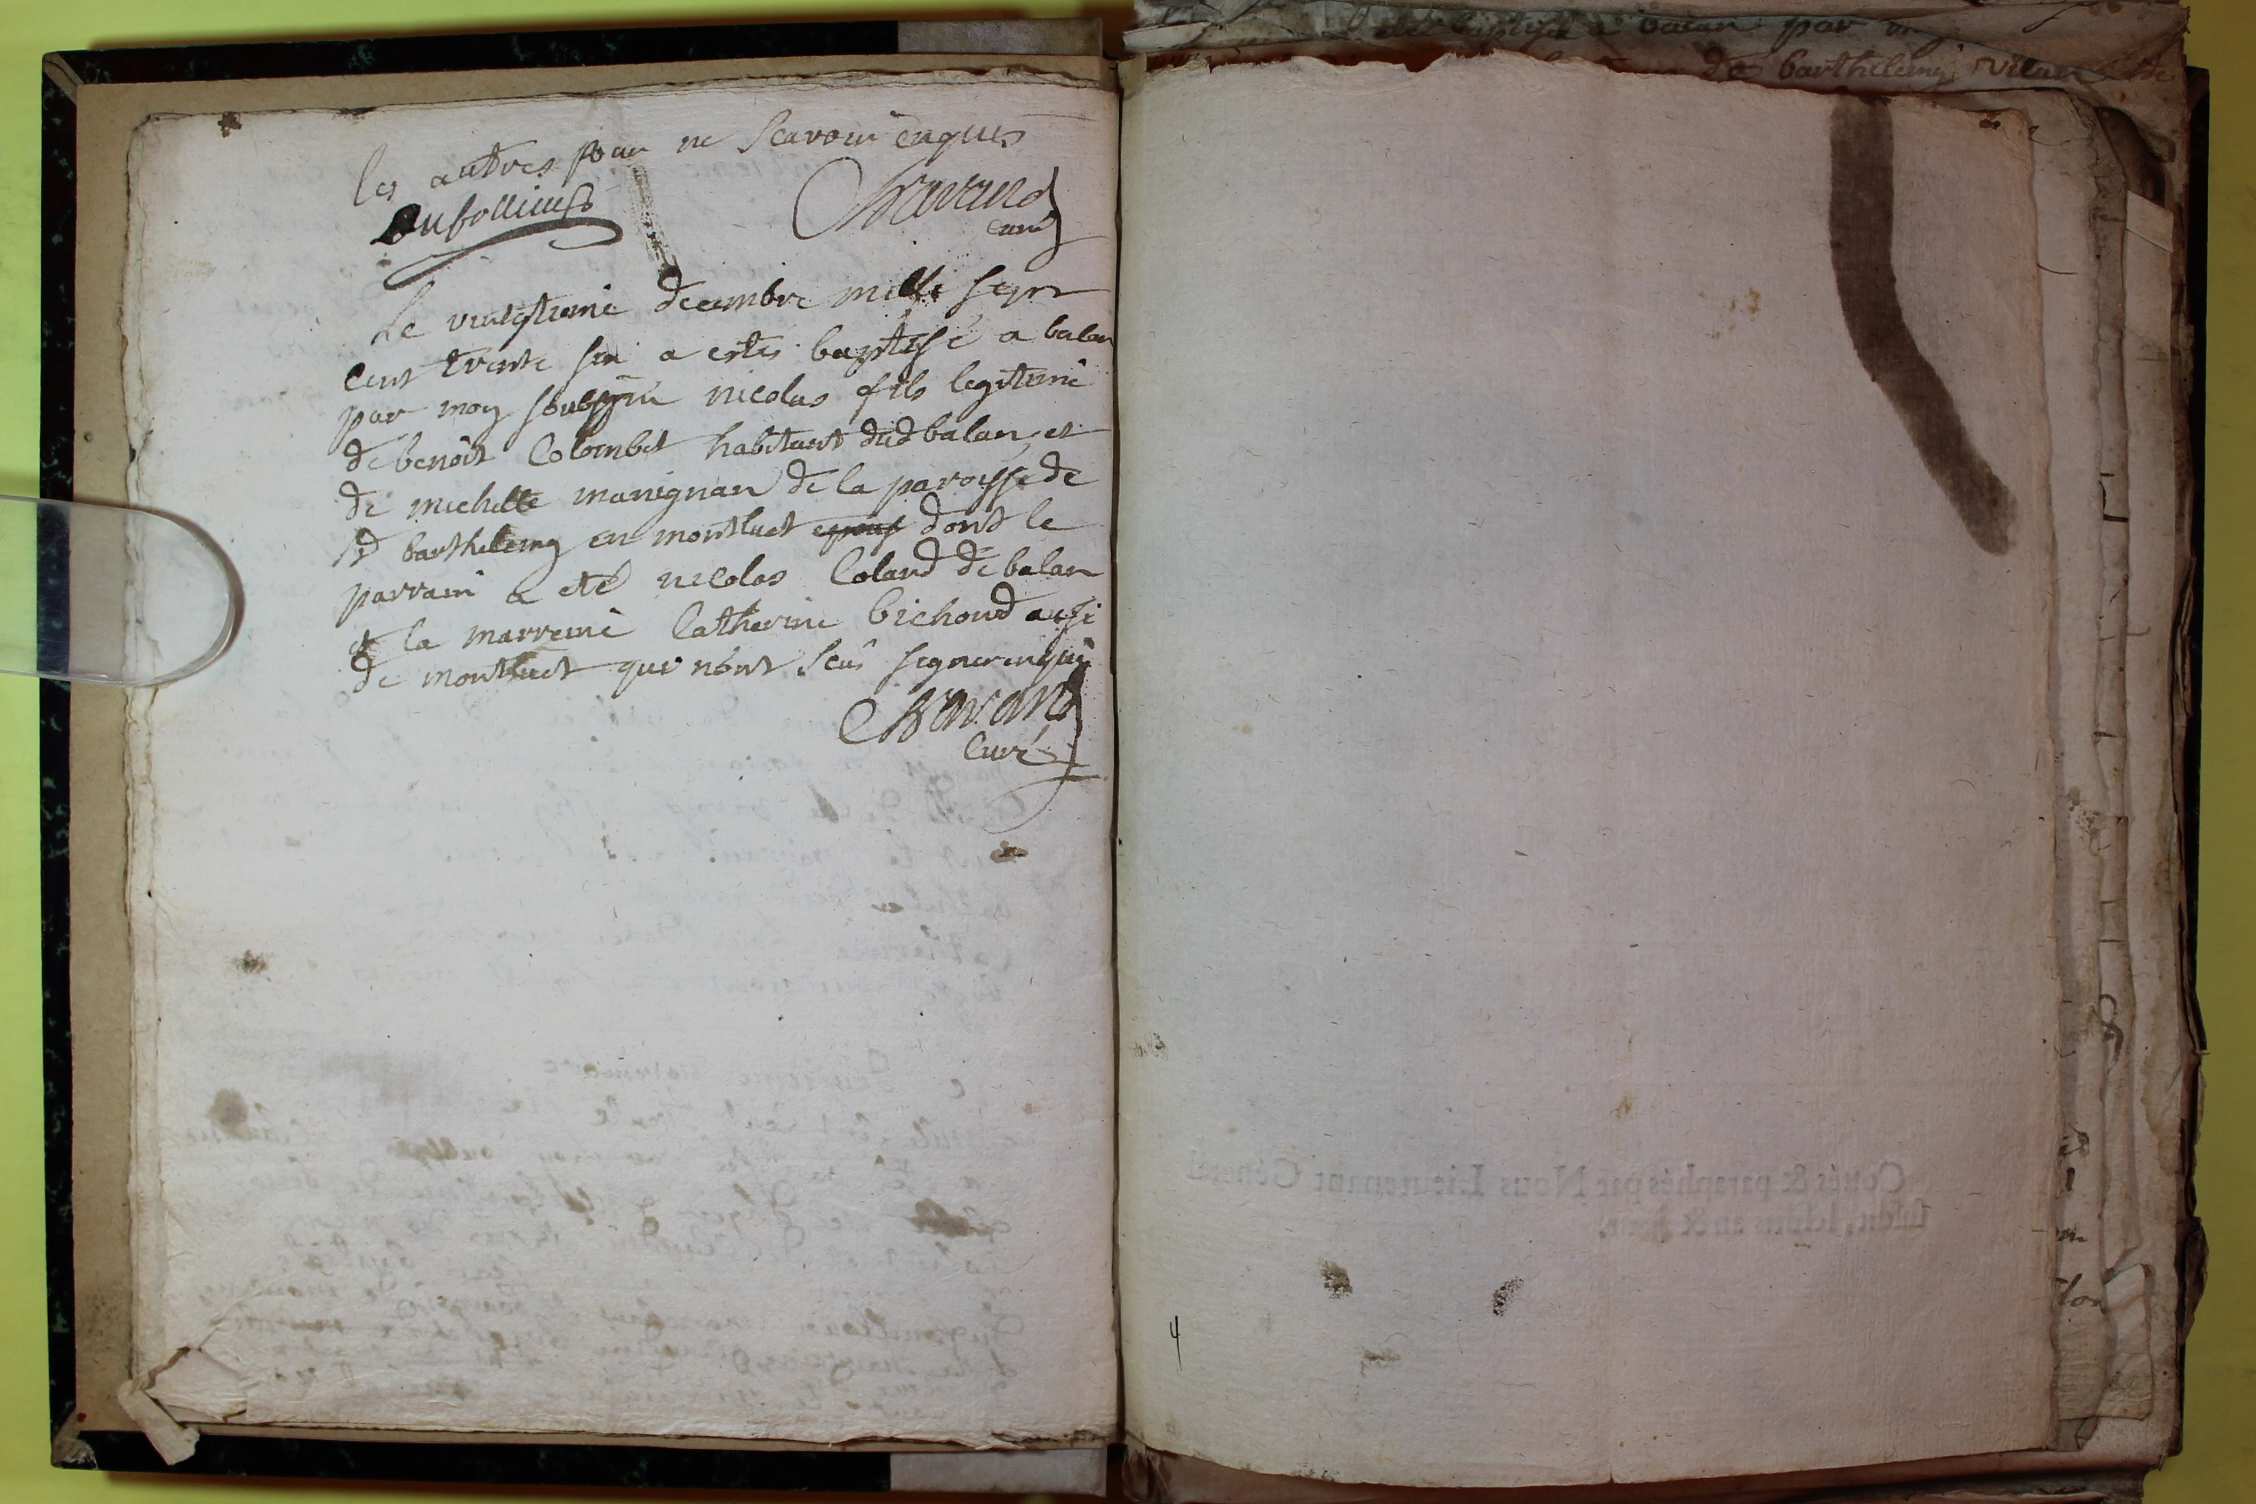 les autres pour ne scavoir enquis
Chavand
curé
Le vintgtieme decembre mille sept
cent trente six a estés baptisé a balan
par moy soubsigné nicolas fils legitime
de benoit Colombet habitant dud balan, et
de michelle manignan de la paroisse de
st barthelemy en montluct dont le
parrain a eté nicolas Coland de balan
et la marreine Catherine bichoud aussi
de montluct qui n'ont sceu signer enquis
Chavand
Curé
balan par
de barthelemy
Cottés & paraphés par Nous Lieutenant Général
an & jour.
4